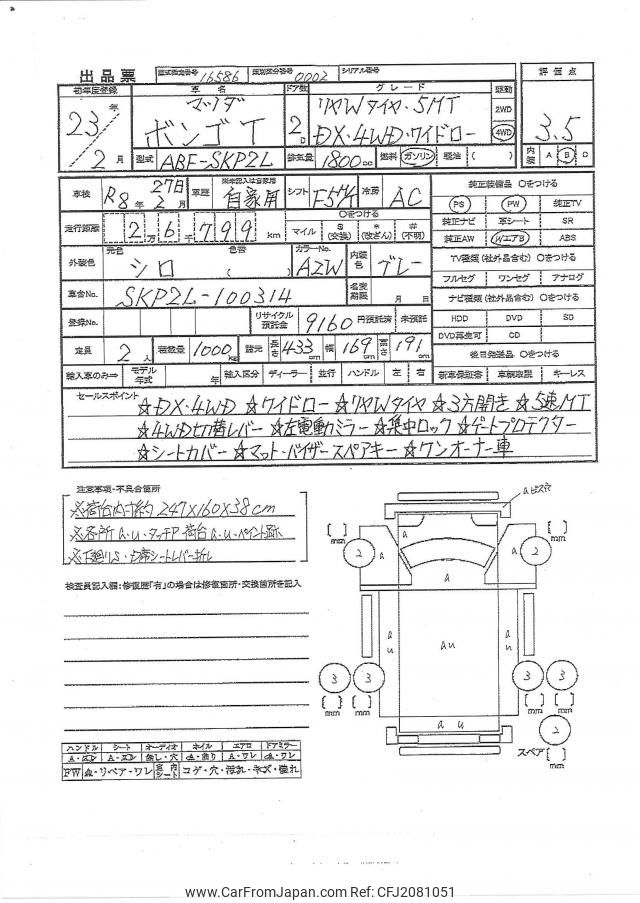 出品票 型式指定番号 16586 類別区分番号 0002 シリアル番号
初年度登録 車名 ドア数 グレード 駆動 評価点
23年 マツダ リヤWタイヤ・5MT 2WD
2月 ボンゴT 2D DX・4WD・ワイドロー 4WD 3.5
型式 ABF-SKP2L 排気量 1800cc 燃料 ガソリン・軽油・( ) 内装 A B C
車検 R8年 27日 2月 車歴 自家用 シフト F5MT 冷房 AC 純正装備品 ○をつける
PS PW 純正TV
走行距離 2万6千799km ○をつける マイル $(交換) *(改ざん) #(不明) 純正ナビ 革シート SR
純正AW WエアB ABS
外装色 元色 シロ 色替 ( ) カラーNo. A2W 内装色 グレー TV種類(社外品含む) ○をつける
フルセグ ワンセグ アナログ
車台No. SKP2L-100314 名変期限 月 日 ナビ種類(社外品含む) ○をつける
登録No. リサイクル預託金 9160円預託済 未預託 HDD DVD SD
DVD再生可 CD
定員 2人 積載量 1000kg 諸元 長さ 433cm 幅 169cm 高さ 191cm 後日発送品 ○をつける
輸入車のみ⇒ モデル年式 年 輸入区分 ディーラー・並行 ハンドル 左・右 新車保証書 車輌取説 キーレス
セールスポイント
☆DX・4WD ☆ワイドロー ☆リヤWタイヤ ☆3方開き ☆5速MT
☆4WD切替レバー ☆左電動ミラー ☆集中ロック ☆ゲートプロテクター
☆シートカバー ☆マット・バイザースペアキー ☆ワンオーナー車
注意事項・不具合箇所
※荷台内寸約 247×160×38cm
※各所a.u.タッチP 荷台a.u.ペイント跡
※下廻りS・助席シートレバー折レ
検査員記入欄:修復歴「有」の場合は修復箇所・交換箇所を記入
aビス穴
[ ]mm 2 a a 2 [ ]mm
a a a
a u au a u
3 3 3 3
[ ]mm [ ]mm [ ]mm [ ]mm
a u
2
スペア [ ]mm
ハンドル シート オーディオ ホイル エアロ ドアミラー
A・スレ A・スレ 無し・穴 a・曲り a・ワレ a・ワレ
FW a・リペア・ワレ 室内シート コゲ・穴・汚れ・キズ・擦れ
www.CarFromJapan.com Ref: CFJ2081051